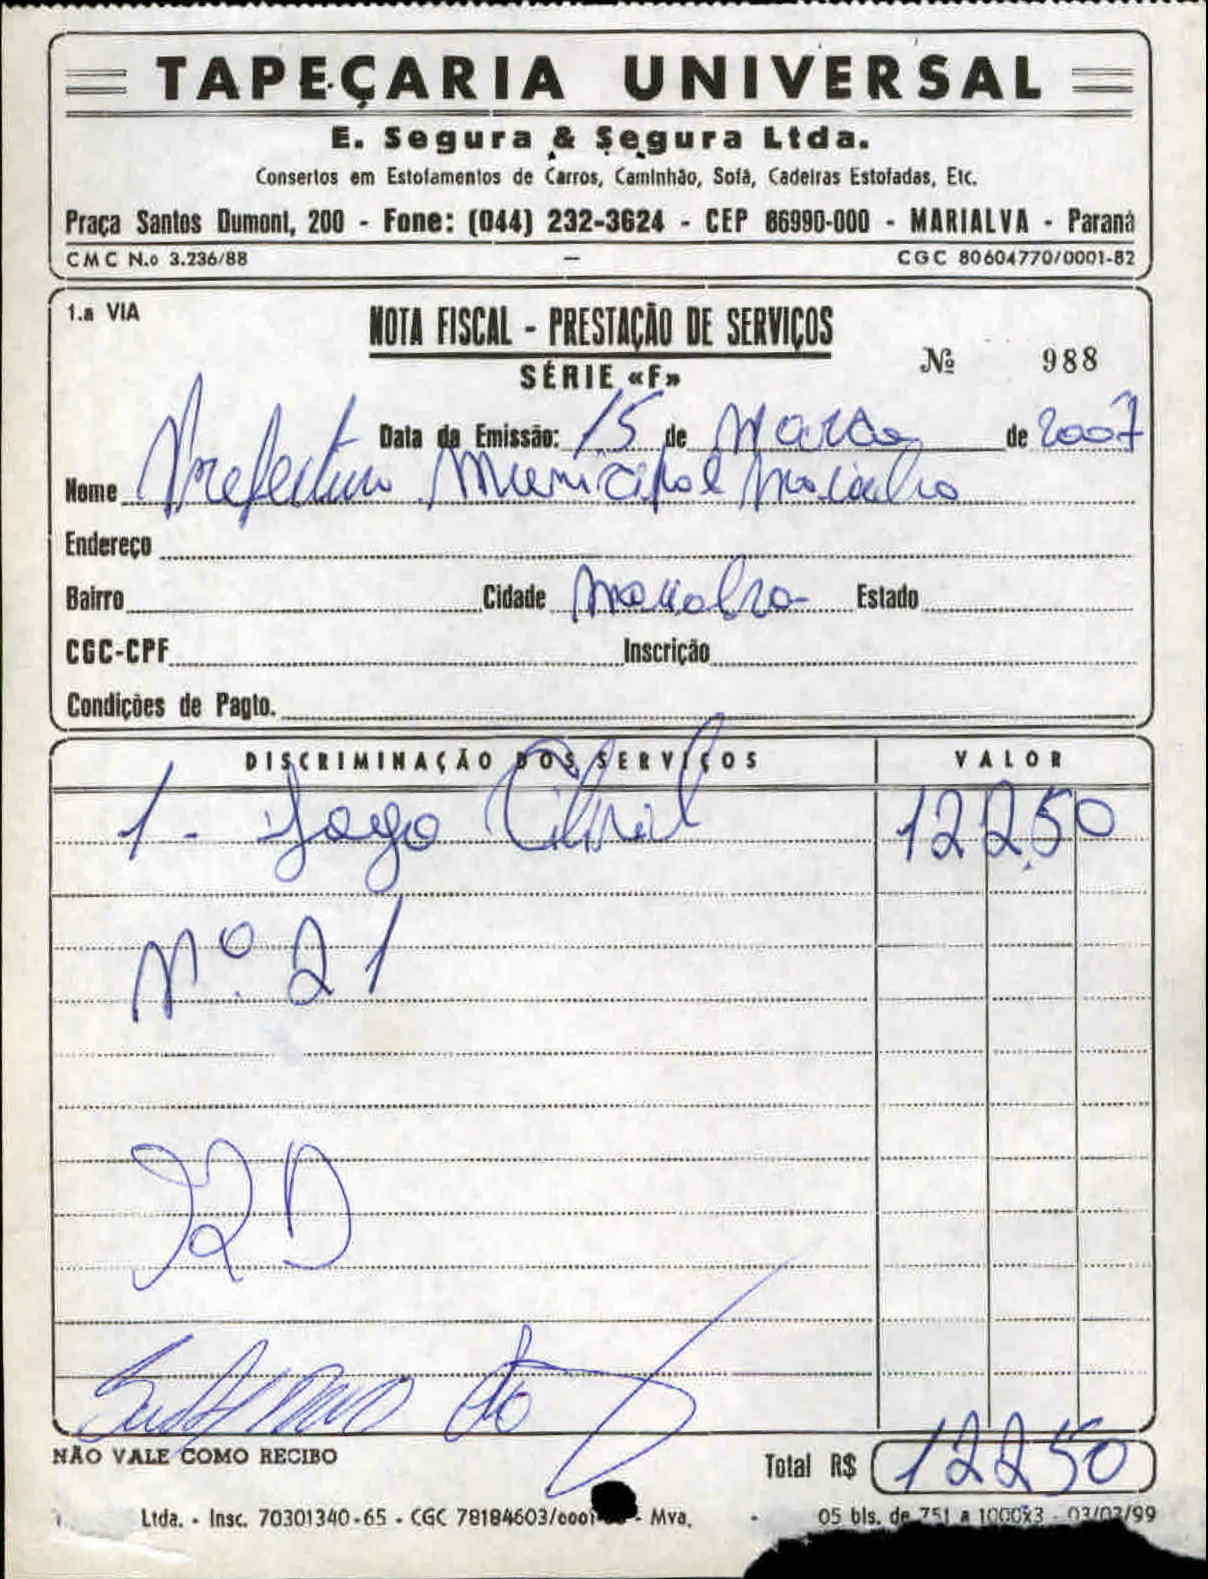 TAPEÇARIA UNIVERSAL
E. Segura & Segura Ltda.
Consertos em Estofamentos de Carros, Caminhão, Sofá, Cadeiras Estofadas, Etc.
Praça Santos Dumont, 200 - Fone: (044) 232-3624 - CEP 86990-000 - MARIALVA - Paraná
CMC N.o 3.236/88 — CGC 80604770/0001-82
1.a VIA
NOTA FISCAL - PRESTAÇÃO DE SERVIÇOS
Nº 988
SÉRIE «F»
Data da Emissão: 15 de Março de 2007
Nome Prefeitura Municipal Marialva
Endereço
Bairro Cidade Marialva Estado
CGC-CPF Inscrição
Condições de Pagto.
DISCRIMINAÇÃO DOS SERVIÇOS VALOR
1 - Jogo 122,50
Nº. 21
NÃO VALE COMO RECIBO
Total R$ 122,50
Ltda. - Insc. 70301340-65 - CGC 78184603/0001 - Mva.
05 bls. de 751 a 1000x3 - 03/03/99